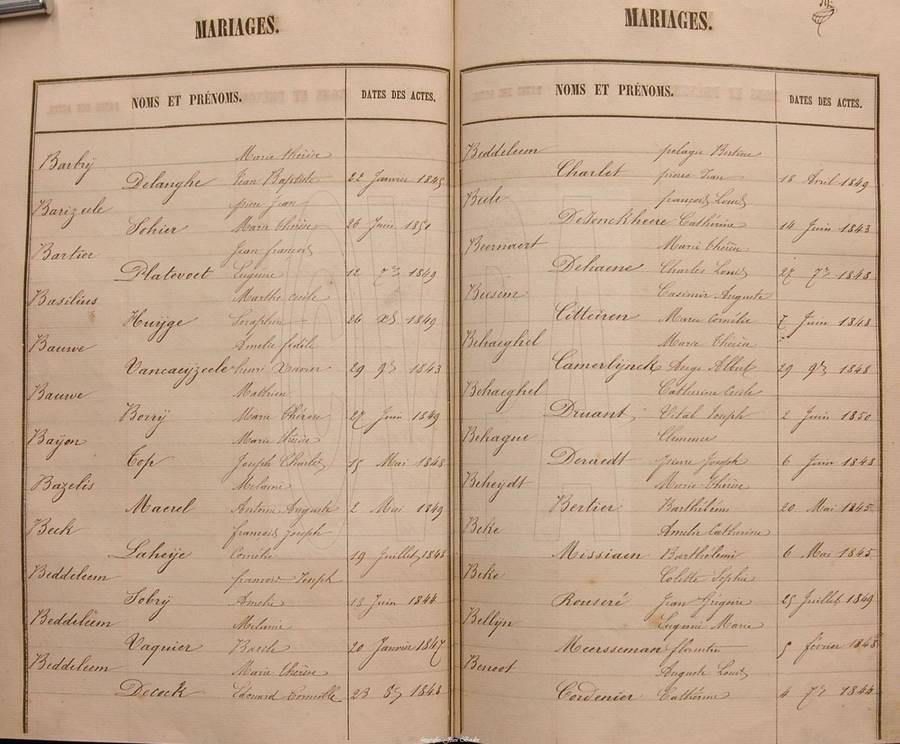 MARIAGES.
NOMS ET PRÉNOMS. DATES DES ACTES.
Barbry Marie thérèse
Delanghe Jean Baptiste 22 Janvier 1845
Barizeele pierre jean
Sohier Marie thérèse 26 Juin 1850
Bartier Jean françois
Platevoet Eugénie 12 7bre 1849
Basilius Marthe cécile
Huyge Séraphin 26 xbre 1849
Bauwe Amélie fidèle
Vancaeyzeele henri Xavier 29 9bre 1843
Bauwe Mathieu
Borry Marie thérèse 27 Juin 1849
Bayon Marie thérèse
Top Joseph Charles 15 Mai 1848
Bazelis Mélanie
Macrel Antoine Auguste 2 Mai 1849
Beck françois Joseph
Laheye Cornélie 19 Juillet 1843
Beddeleem françois Joseph
Sobry Amélie 13 Juin 1844
Beddeleem Mélanie
Vagnier Basile 20 Janvier 1847
Beddeleem Marie thérèse
Decock Edouard Corneille 23 8bre 1843
MARIAGES.
NOMS ET PRÉNOMS. DATES DES ACTES.
Beddeleem pelagie Bertine
Charlet pierre Jean 18 Avril 1849
Beele françois Louis
DeJonckheere Cathérine 14 Juin 1843
Beernaert Marie thérèse
Dehaene Charles Louis 27 7bre 1848
Beesem Casimir Auguste
Citteiren Marie Cornélie 7 Juin 1848
Behaeghel Marie thérèse
Camerlynck Ange Albert 29 9bre 1848
Behaeghel Catherine Cécile
Druant Vital Joseph 2 Juin 1850
Behague Clémence
Deraedt pierre Joseph 6 Juin 1843
Beheydt Marie thérèse
Bertier Barthélemi 20 Mai 1845
Beke Amélie Catherine
Missiaen Barthélemi 6 Mai 1845
Beke Colette Sophie
Rouseré Jean Grégoire 25 Juillet 1849
Bellyn Eugénie Marie
Meersseman florentin 5 février 1848
Benoot Auguste Louis
Cordenier Cathérine 4 7bre 1844